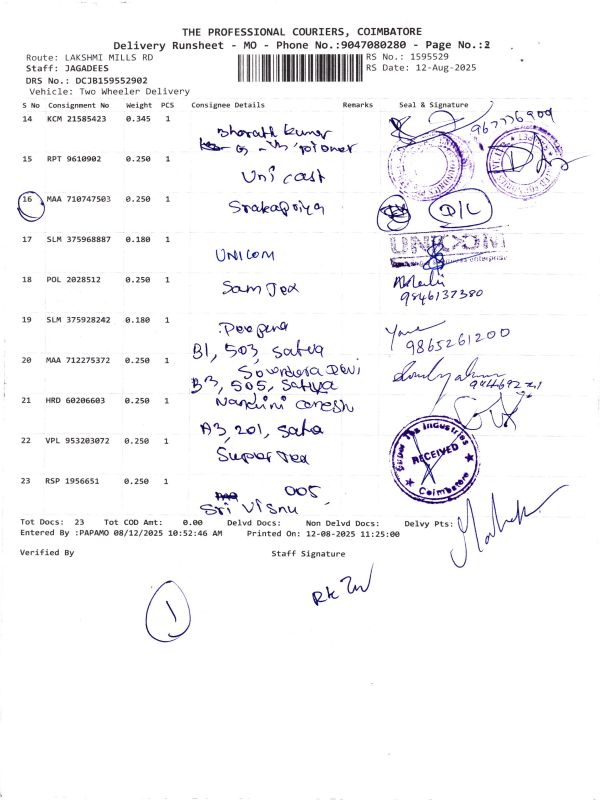 THE PROFESSIONAL COURIERS, COIMBATORE
Delivery Runsheet - MO - Phone No.:9047080280 - Page No.:2
Route: LAKSHMI MILLS RD
RS No.: 1595529
Staff: JAGADEES
RS Date: 12-Aug-2025
DRS No.: DCJB159552902
Vehicle: Two Wheeler Delivery
S No Consignment No Weight PCS Consignee Details Remarks Seal & Signature
14 KCM 21585423 0.345 1
Bharath Kumar
15 RPT 9610902 0.250 1
Uni cast
16 MAA 710747503 0.250 1
D/L
17 SLM 375968887 0.180 1
UNICOM
UNICOM
enterprise
18 POL 2028512 0.250 1
Sam Tex
9846137380
19 SLM 375928242 0.180 1
Deepena
9865261200
B1, 503, Satva
20 MAA 712275372 0.250 1
Devi
B3, 505, Satya
21 HRD 60206603 0.250 1
Nandini Ganesh
A3, 201, Satva
22 VPL 953203072 0.250 1
Super Tex
Super Tex Industries
RECEIVED
Coimbatore
23 RSP 1956651 0.250 1
005
Sri Visnu
Tot Docs: 23 Tot COD Amt: 0.00 Delvd Docs: Non Delvd Docs: Delvy Pts:
Entered By :PAPAMO 08/12/2025 10:52:46 AM Printed On: 12-08-2025 11:25:00
Verified By Staff Signature
1